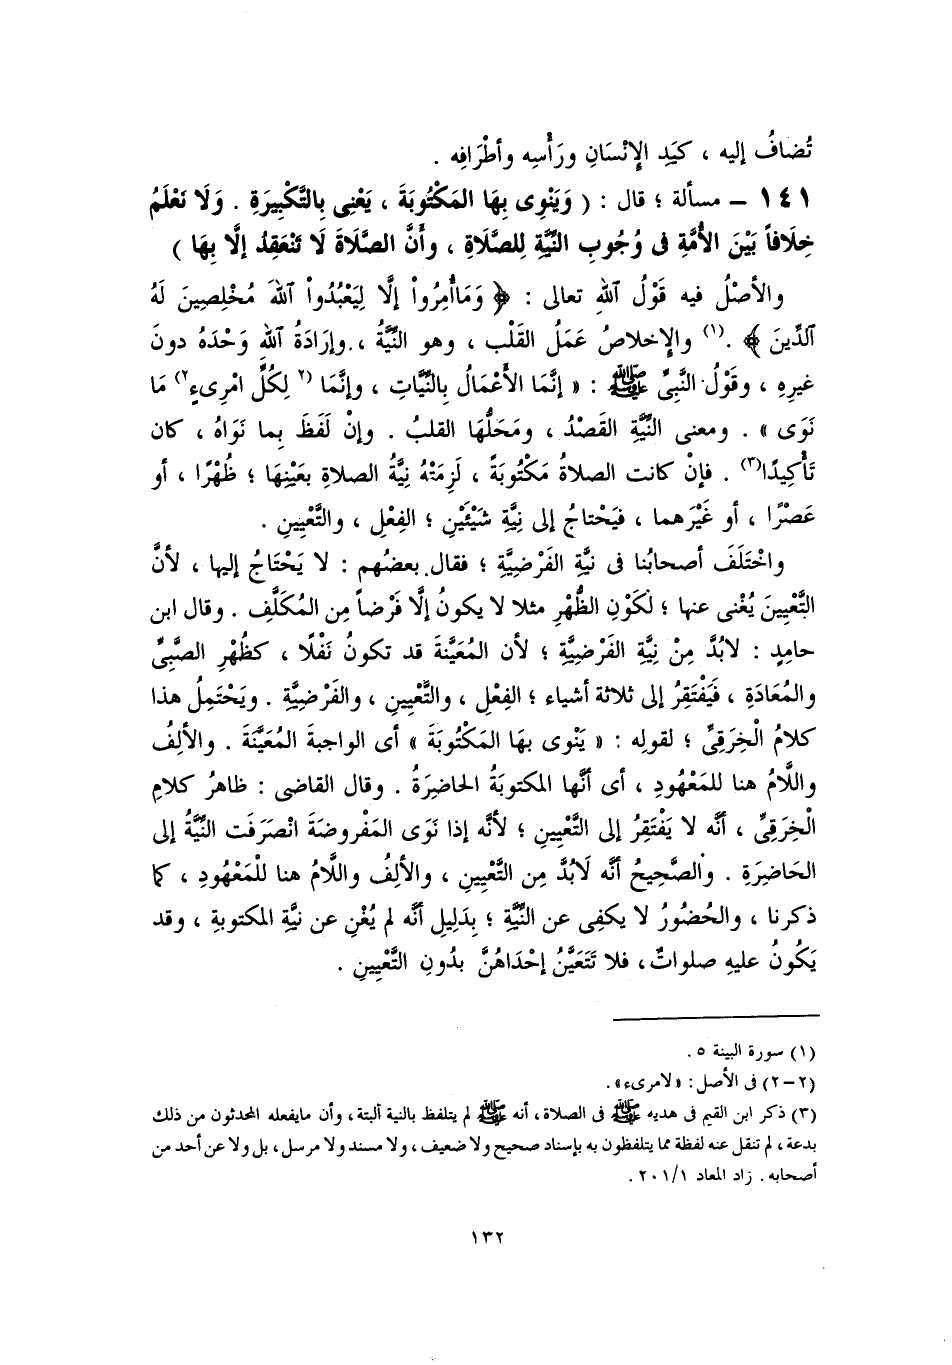 تُضافُ إليه ، كيَدِ الإِنْسَانِ ورَأْسِه وأطْرَافِه .
١٤١ – مسألة ؛ قال : ( وَيَنْوِى بِهَا المَكْتُوبَةَ ، يَعْنِى بِالتَّكْبِيرَةِ . وَلَا نَعْلَمُ
خِلَافاً بَيْنَ الأُمَّةِ فى وُجُوبِ النِّيَّةِ لِلصَّلَاةِ ، وأَنَّ الصَّلَاةَ لَا تَنْعَقِدُ إلَّا بِهَا )
والأصْلُ فيه قَوْلُ اللهِ تعالى : ﴿ وَمَاأُمِرُواْ إلَّا لِيَعْبُدُواْ اللهَ مُخْلِصِينَ لَهُ
الدِّينَ ﴾ .(١) والإِخلاصُ عَمَلُ القَلْب ، وهو النِّيَّةُ ، وإرَادَةُ اللهِ وَحْدَهُ دونَ
غيرِهِ ، وقَوْلُ النَّبِىِّ ﷺ : « إنَّمَا الأَعْمَالُ بِالنِّيَّاتِ ، وإنَّمَا (٢ لِكُلِّ امْرِىءٍ٢) مَا
نَوَى » . ومعنى النِّيَّةِ القَصْدُ ، ومَحَلُّهَا القلبُ . وإنْ لَفَظَ بِما نَوَاهُ ، كان
تَأْكِيدًا(٣) . فإنْ كانت الصلاةُ مَكْتُوبَةً ، لَزِمَتْهُ نِيَّةُ الصلاةِ بعَيْنِهَا ؛ ظُهْرًا ، أو
عَصْرًا ، أو غَيْرَهما ، فيَحْتاجُ إلى نِيَّةِ شَيْئَيْنِ ؛ الفِعْلِ ، والتَّعْيِينِ .
واخْتَلَفَ أصحابُنا فى نيَّةِ الفَرْضِيَّةِ ؛ فقال بعضُهم : لا يَحْتَاجُ إليها ، لأنَّ
التَّعْيِينَ يُغْنى عنها ؛ لكَوْنِ الظُّهْرِ مثلا لا يكونُ إلَّا فَرْضاً مِن المُكَلَّفِ . وقال ابن
حامِدٍ : لابُدَّ مِنْ نِيَّةِ الفَرْضِيَّةِ ؛ لأن المُعَيَّنةَ قد تكونُ نَفْلًا ، كظُهْرِ الصَّبِىِّ
والمُعَادَةِ ، فَيَفْتَقِرُ إلى ثلاثة أشياء ؛ الفِعْلِ ، والتَّعْيِينِ ، والفَرْضِيَّةِ . ويَحْتَمِلُ هذا
كلامُ الْخِرَقِىِّ ؛ لقولِه : « يَنْوى بها المَكْتُوبَةَ » أى الواجبةَ المُعَيَّنَةَ . والألِفُ
واللَّامُ هنا للمَعْهُودِ ، أى أنَّها المكتوبَةُ الحاضِرَةُ . وقال القاضى : ظاهرُ كلامِ
الْخِرَقِىِّ ، أنَّه لا يَفْتَقِرُ إلى التَّعْيِينِ ؛ لأنَّه إذا نَوَى المَفْروضَةَ انْصَرَفَت النِّيَّةُ إلى
الحَاضِرَةِ . والصَّحِيحُ أنَّه لَابُدَّ مِن التَّعْيِينِ ، والألِفُ واللَّامُ هنا للْمَعْهُودِ ، كما
ذكرنا ، والحُضُورُ لا يكفِى عن النِّيَّةِ ؛ بِدَلِيلِ أنَّه لم يُغْنِ عن نيَّةِ المكتوبةِ ، وقد
يَكُونُ عليهِ صلواتٌ ، فلا تَتَعَيَّنُ إحْدَاهُنَّ بدُونِ التَّعْيِينِ .
(١) سورة البينة ٥ .
(٢-٢) فى الأصل : «لامرىء» .
(٣) ذكر ابن القيم فى هديه ﷺ فى الصلاة ، أنه ﷺ لم يتلفظ بالنية ألبتة ، وأن مايفعله المحدثون من ذلك
بدعة ، لم تنقل عنه لفظة مما يتلفظون به بإسناد صحيح ولا ضعيف ، ولا مسند ولا مرسل ، بل ولا عن أحد من
أصحابه . زاد المعاد ٢٠١/١ .
١٣٢